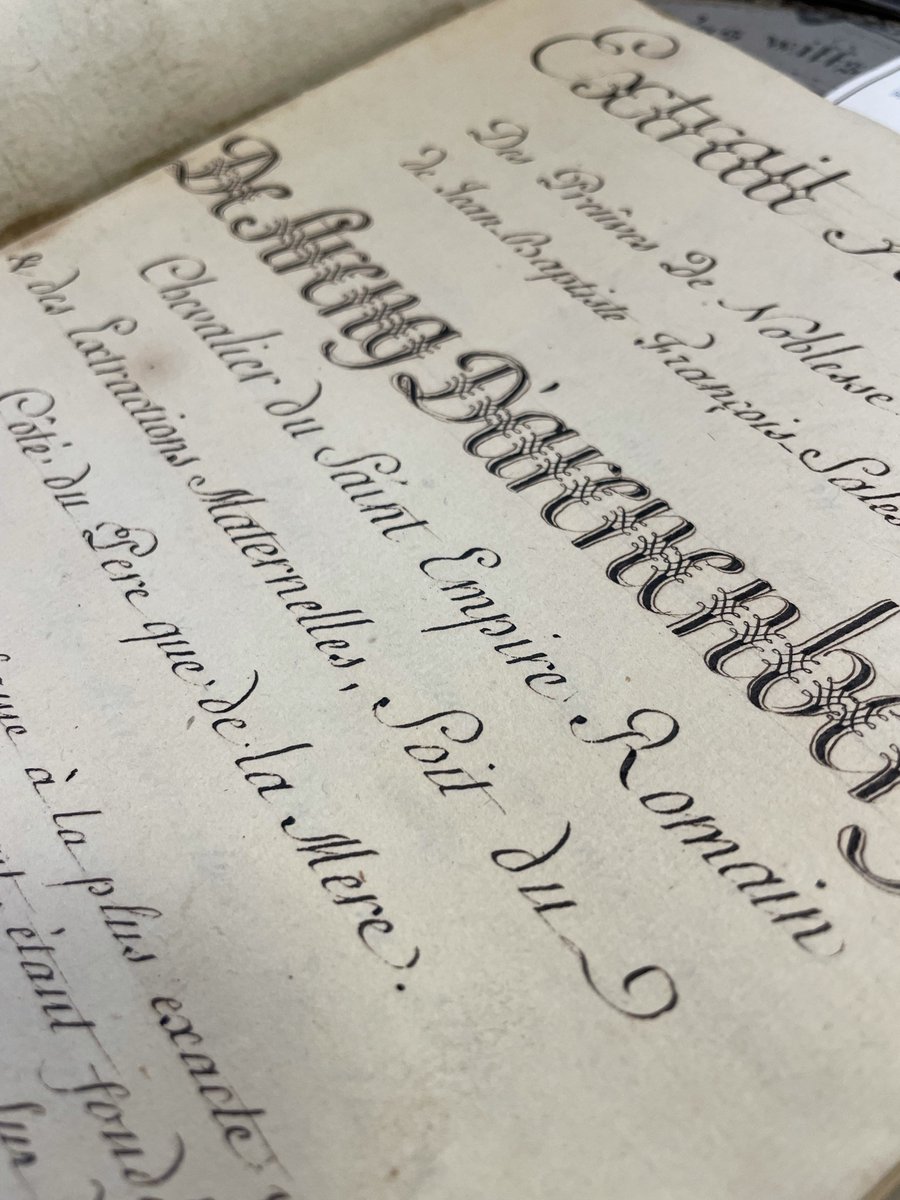 Extrait
Des Preûves De Noblesse
de Jean Baptiste François Sales
De Streng D'arenb
Chevalier du Saint Empire Romain
& des Extractions Maternelles, Soit du
Côté du Pere que de la Mere.
à la plus exacte
étant fond
Sur